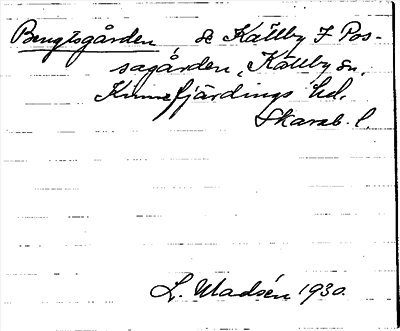 Bengtsgården, se Källby 7 Pos-
sagården, Källby sn,
Kinnefjärdings hd,
Skarab. l.
L. Madsén 1930.